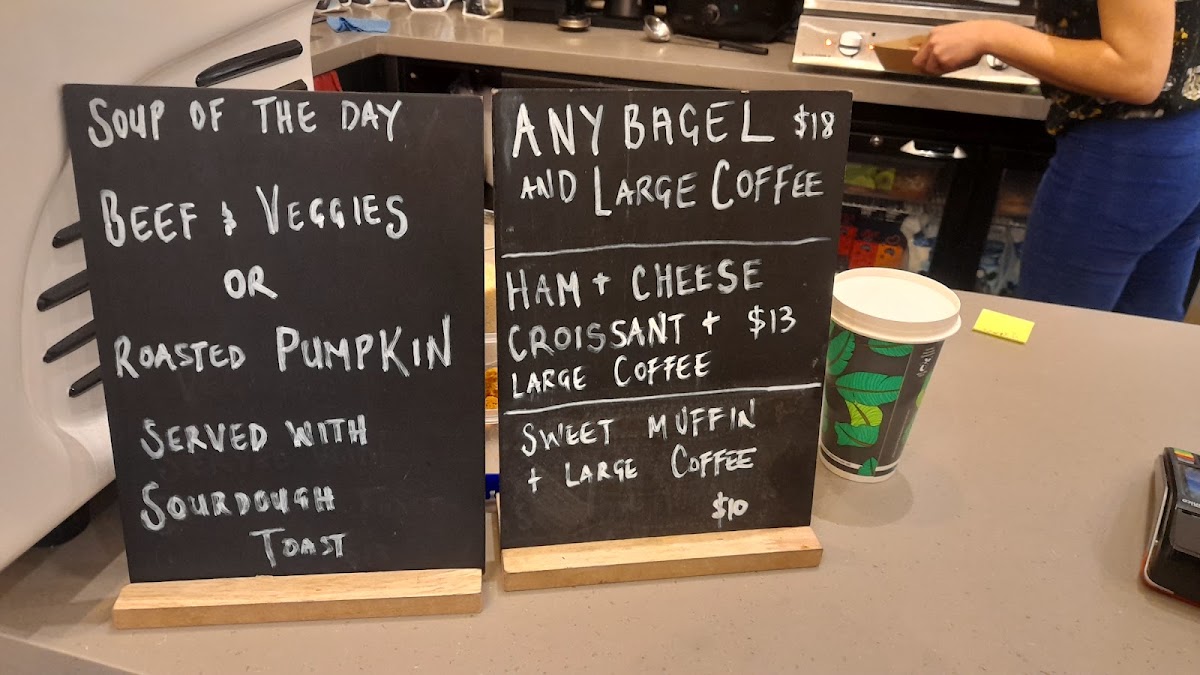 SOUP OF THE DAY
BEEF & VEGGIES
OR
ROASTED PUMPKIN
SERVED WITH
SOURDOUGH
TOAST
ANY BAGEL $18
AND LARGE COFFEE
HAM + CHEESE
CROISSANT + $13
LARGE COFFEE
SWEET MUFFIN
+ LARGE COFFEE
$10